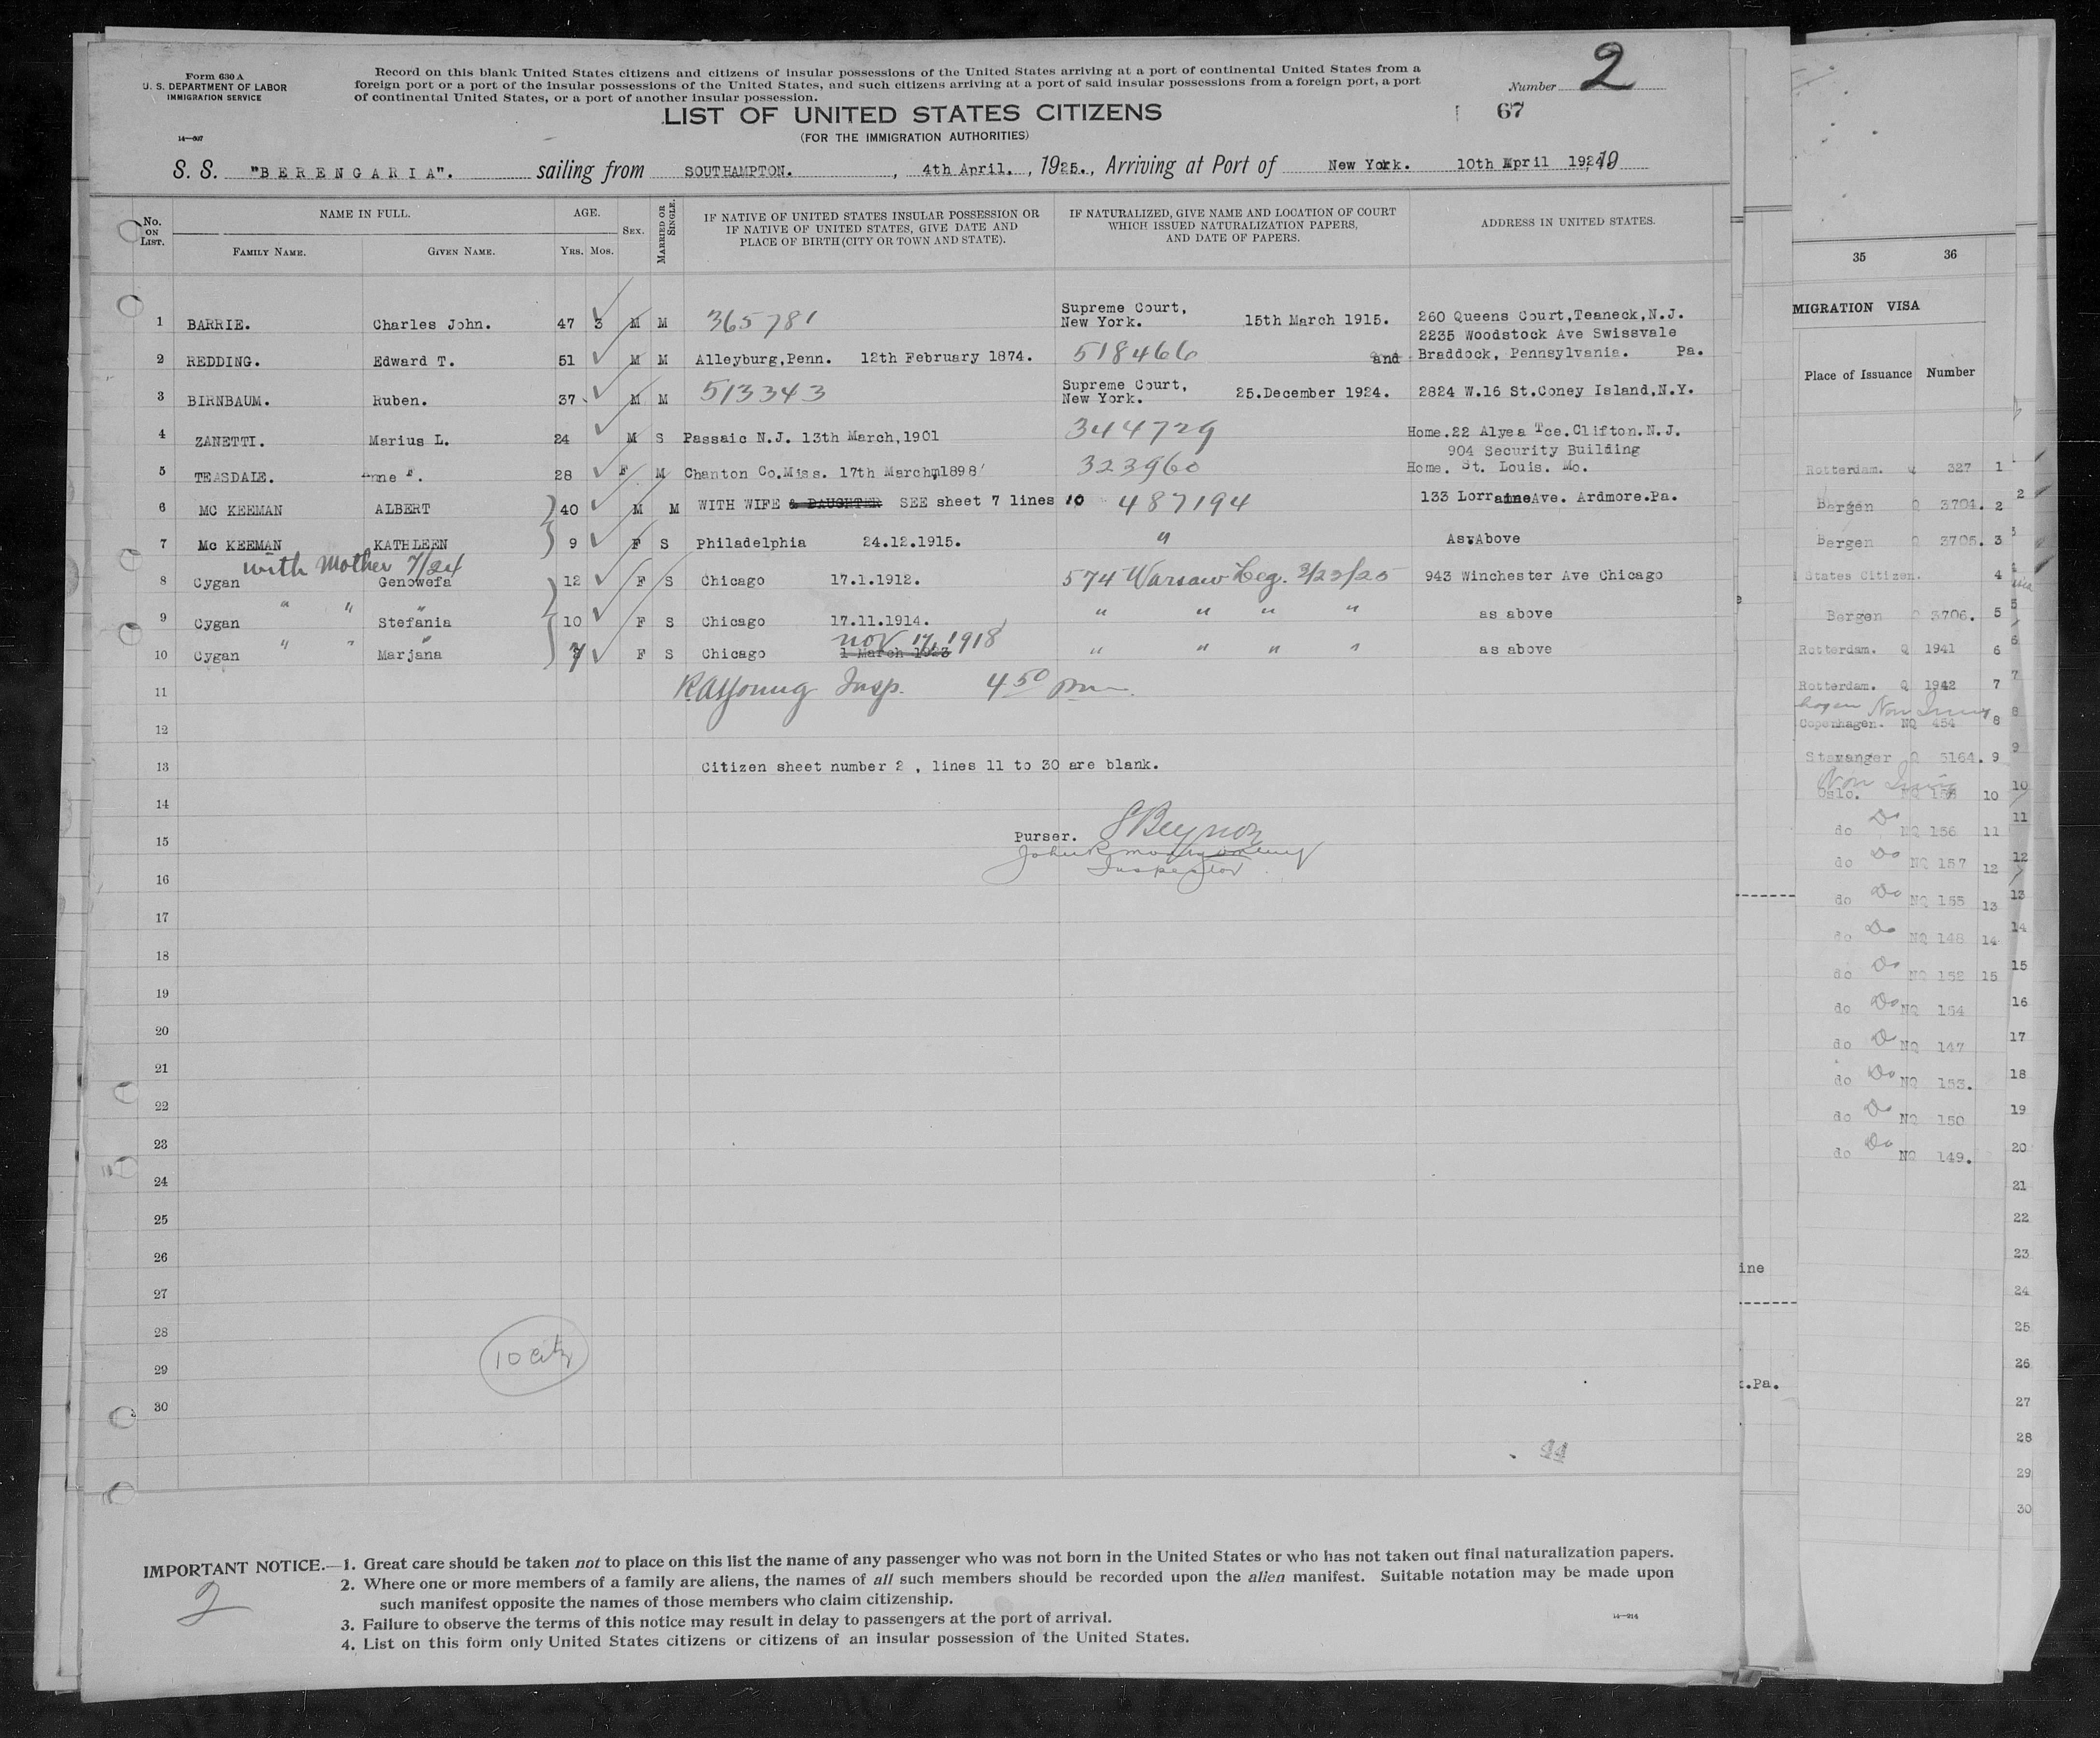 Form 630 A
U. S. DEPARTMENT OF LABOR
IMMIGRATION SERVICE
14—687
Record on this blank United States citizens and citizens of insular possessions of the United States arriving at a port of continental United States from a
foreign port or a port of the insular possessions of the United States, and such citizens arriving at a port of said insular possessions from a foreign port, a port
of continental United States, or a port of another insular possession.
Number 2
67
LIST OF UNITED STATES CITIZENS
(FOR THE IMMIGRATION AUTHORITIES)
S. S. "BERENGARIA". sailing from SOUTHAMPTON. , 4th April. , 1925., Arriving at Port of New York. 10th April 192
No. ON LIST. NAME IN FULL. AGE. SEX. MARRIED OR SINGLE. IF NATIVE OF UNITED STATES INSULAR POSSESSION OR IF NATIVE OF UNITED STATES, GIVE DATE AND PLACE OF BIRTH (CITY OR TOWN AND STATE). IF NATURALIZED, GIVE NAME AND LOCATION OF COURT WHICH ISSUED NATURALIZATION PAPERS, AND DATE OF PAPERS. ADDRESS IN UNITED STATES.
FAMILY NAME. GIVEN NAME. YRS. MOS.
1 BARRIE. Charles John. 47 3 M M 365781 Supreme Court, New York. 15th March 1915. 260 Queens Court,Teaneck,N.J.
2235 Woodstock Ave Swissvale
2 REDDING. Edward T. 51 M M Alleyburg,Penn. 12th February 1874. 518466 and Braddock, Pennsylvania. Pa.
3 BIRNBAUM. Ruben. 37 M M 513343 Supreme Court, New York. 25.December 1924. 2824 W.16 St.Coney Island,N.Y.
4 ZANETTI. Marius L. 24 M S Passaic N.J. 13th March,1901 344729 Home.22 Alyea Tce.Clifton.N.J.
904 Security Building
5 TEASDALE. F. 28 F M Chanton Co.Miss. 17th March,1898 323960 Home. St. Louis. Mo.
6 MC KEEMAN ALBERT 40 M M WITH WIFE & DAUGHTER SEE sheet 7 lines 10 487194 133 Lorraine Ave. Ardmore.Pa.
7 Mc KEEMAN KATHLEEN 9 F S Philadelphia 24.12.1915. " As Above
with Mother 7/24
8 Cygan Genowefa 12 F S Chicago 17.1.1912. 574 Warsaw Leg. 3/23/25 943 Winchester Ave Chicago
9 Cygan " " Stefania " 10 F S Chicago 17.11.1914. " " " " as above
nov 17, 1918
10 Cygan " " Marjana " 7 F S Chicago 1 March 1923 " " " " as above
11 RAYoung Insp. 4 50 pm
12
13 Citizen sheet number 2 , lines 11 to 30 are blank.
14
15 Purser. SBeynon
John R Montgomery
16 Inspector
17
18
19
20
21
22
23
24
25
26
27
28
29 10 citz
30
44
IMPORTANT NOTICE.—1. Great care should be taken not to place on this list the name of any passenger who was not born in the United States or who has not taken out final naturalization papers.
2. Where one or more members of a family are aliens, the names of all such members should be recorded upon the alien manifest. Suitable notation may be made upon
such manifest opposite the names of those members who claim citizenship.
3. Failure to observe the terms of this notice may result in delay to passengers at the port of arrival.
4. List on this form only United States citizens or citizens of an insular possession of the United States.
2
14—214
35 36
MIGRATION VISA
Place of Issuance Number
Rotterdam. Q 327 1
Bergen Q 3704. 2
Bergen Q 3705. 3
States Citizen. 4
Bergen Q 3706. 5
Rotterdam. Q 1941 6
Rotterdam. Q 1942 7
hagen Non Immig
Copenhagen. NQ 454 8
Stavanger Q 5164. 9
Non Immig
Oslo. NQ 10
do Do NQ 156 11
do Do NQ 157 12
do Do NQ 155 13
do Do NQ 148 14
do Do NQ 152 15
do Do NQ 154
do Do NQ 147
do Do NQ 153.
do Do NQ 150
do Do NQ 149.
2
3
5
6
7
8
9
10
11
12
13
14
15
16
17
18
19
20
21
22
23
24
25
26
27
28
29
30
ine
t.Pa.